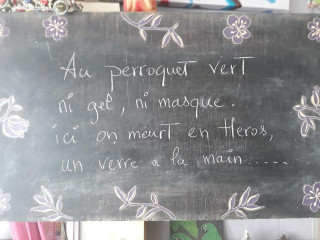 Au perroquet vert
ni gel, ni masque.
ici on meurt en Heros,
un verre a la main.....